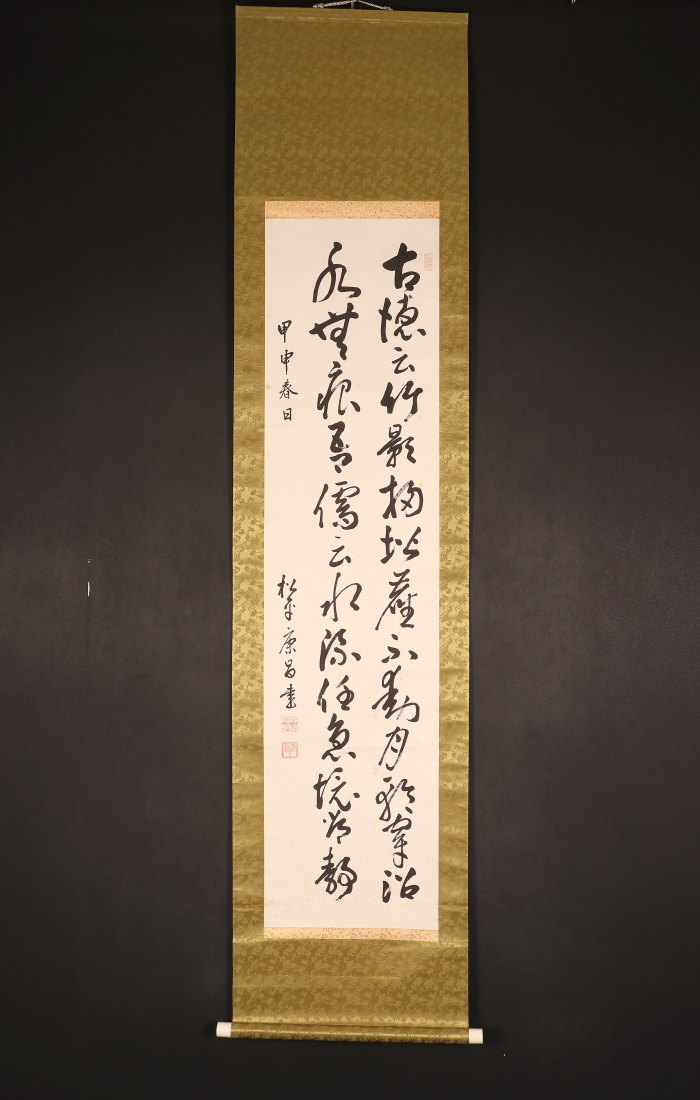 古德云竹影掃堦塵不動月輪穿沼
水無痕吾儒云水流任急境常靜
甲申春日
松平康昌書